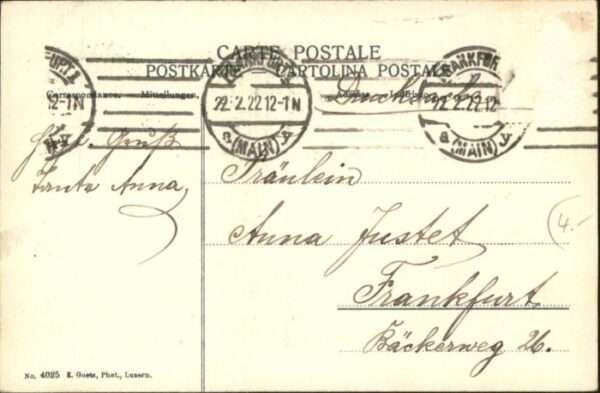 CARTE POSTALE
POSTKARTE CARTOLINA POSTALE
Correspondance. Mittellungen.
Drucksache
FRANKFURT
22.2.22.12-1N
(MAIN)
FRANKFUR
22.2.22.12
(MAIN)
FURT
12-1N
Herzl. Gruß
Tante Anna
Fräulein
Anna Justet
Frankfurt
Bäckerweg 26.
4.-
No. 4025 E. Goetz, Phot., Luzern.